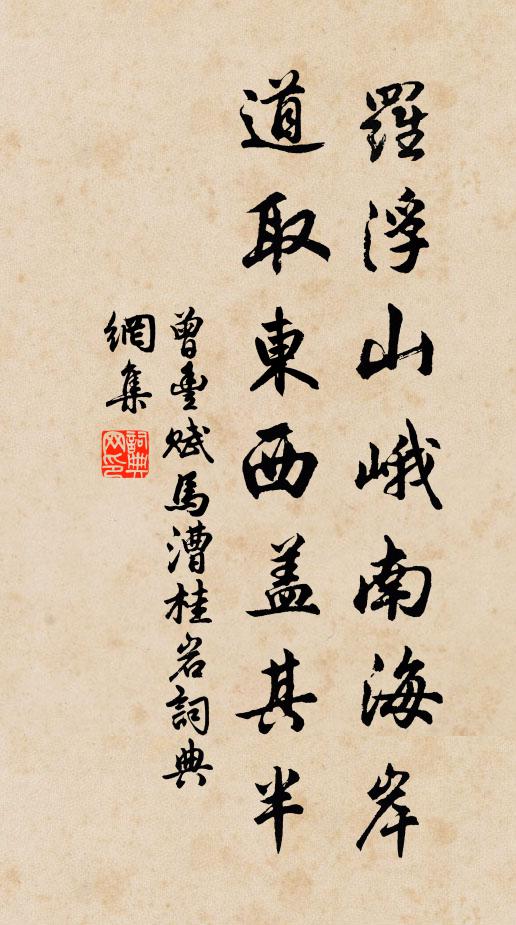 羅浮山峨南海岸
道取東西盖其半
曾豊賦馬漕桂岩詞典
網集
詞典网印